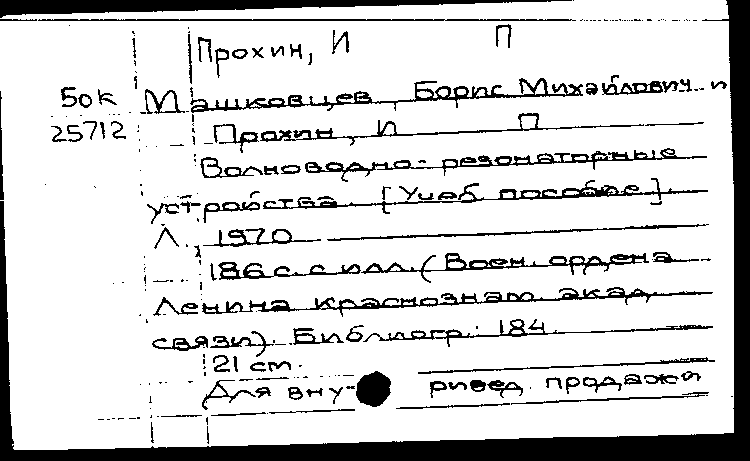 Прохин, И П
50к Машковцев, Борис Михайлович и
25712 Прохин, И П
Волноводно-резонаторные
устройства. [Учеб пособие].
Л., 1970
186 с. с илл. (Воен. ордена
Ленина краснознам. акад.
связи). Библиогр.: 184.
21 cm.
Для вну- продажи